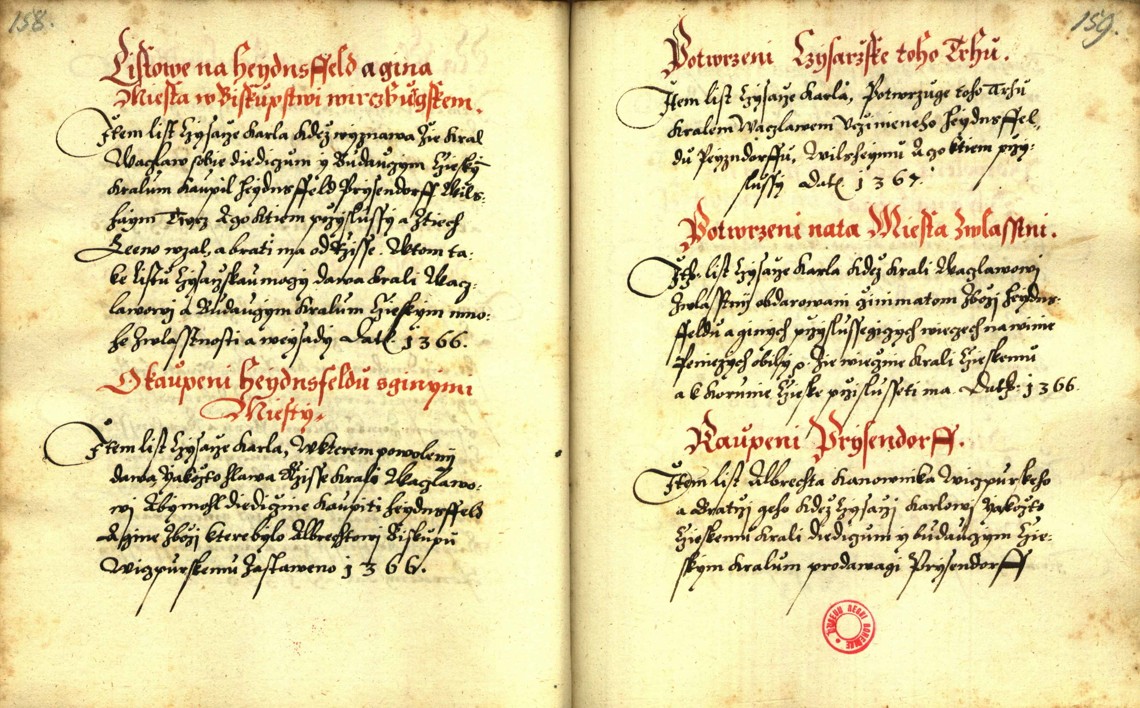 158.
Listowe na Heydnsffeld a gina
Miesta w Biskupstwi wirczbugskem.
Item list Czysarze Karla kdez wyznawa ze Kral
Waczlaw sobie diediczum y Budauczym Czieskym
Kralum kaupil Heydnsffeld Prysendorff Wils:
haym a czoktiem przyslussy a ztiech
Leew wzal, a brati ma od Rzisse. W tom ta:
ke listu Czysarzskau moczy dawa Krali Wacz:
lawowi a Budauczym Kralum Czieskym mno:
he zwlasstnosti a weysady Dat 1366.
O kaupeni Heydnsfeldu s ginymi
Miesty.
Item list Czysarze Karla, w kterem powoleny
dawa, yakozto hlawa Rzisse Krali Waczlawo:
wi Aby mohl diediczne kaupiti Heydnsffeld
a gine zbozi ktere bylo Albrechtowi Biskupu
Wirzpurskemu zastaweno 1366.
159.
Potwrzeni Czysarzske toho Trhu.
Item list Czysarze Karla, Potwrzuge toho Trhu
Kralem Waczlawem Vczinieneho Heydnsffel,
du Peyzndorffu, Wilsheymu a czo k tiem przy:
slussy Dat 1367.
Potwrzeni na ta Miesta zwlasstni.
It: list Czysarze Karla kdez Krali Waczlawowi
zwlasstny obdarowani cini na tom zbozi Heydns:
ffeldu a ginych przyslussegiczych wieczech na winie
Peniezych obily ze wieczne Krali Czieskemu
a k Korunie Czieske przislusseti ma. Dat: 1366.
Kaupeni Prysendorff.
Item list Albrechta Kanownika Wirzpurskeho
a bratrzi geho kdez Czysarzi Karlowi yakozto
Czieskemu Krali diediczum y budauczym Czie:
skym Kralum prodawagi Prysendorff